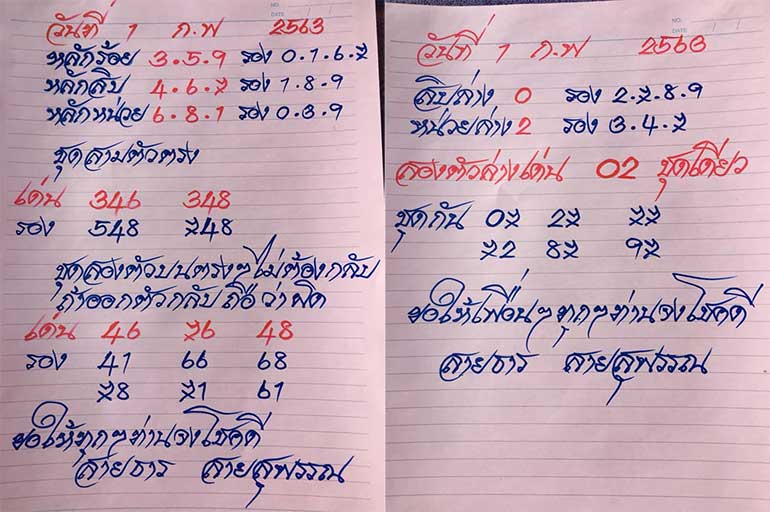 NO.
DATE
วันที่ 1 ก.พ 2563
หลักร้อย 3.5.9 รอง 0.1.6.7
หลักสิบ 4.6.7 รอง 1.8.9
หลักหน่วย 6.8.1 รอง 0.3.9
ชุดสามตัวตรง
เด่น 346 348
รอง 548 748
ชุดสองตัวบนตรงๆไม่ต้องกลับ
ถ้าออกตัวกลับถือว่าผิด
เด่น 46 76 48
รอง 41 66 68
78 71 61
ขอให้ทุกๆท่านจงโชคดี
สายธาร สายสุพรรณ
NO.
DATE
วันที่ 1 ก.พ 2563
สิบล่าง 0 รอง 2.7.8.9
หน่วยล่าง 2 รอง 3.4.7
สองตัวล่างเด่น 02 ชุดเดียว
ชุดกัน 07 27 77
72 87 97
ขอให้เพื่อนๆทุกๆท่านจงโชคดี
สายธาร สายสุพรรณ